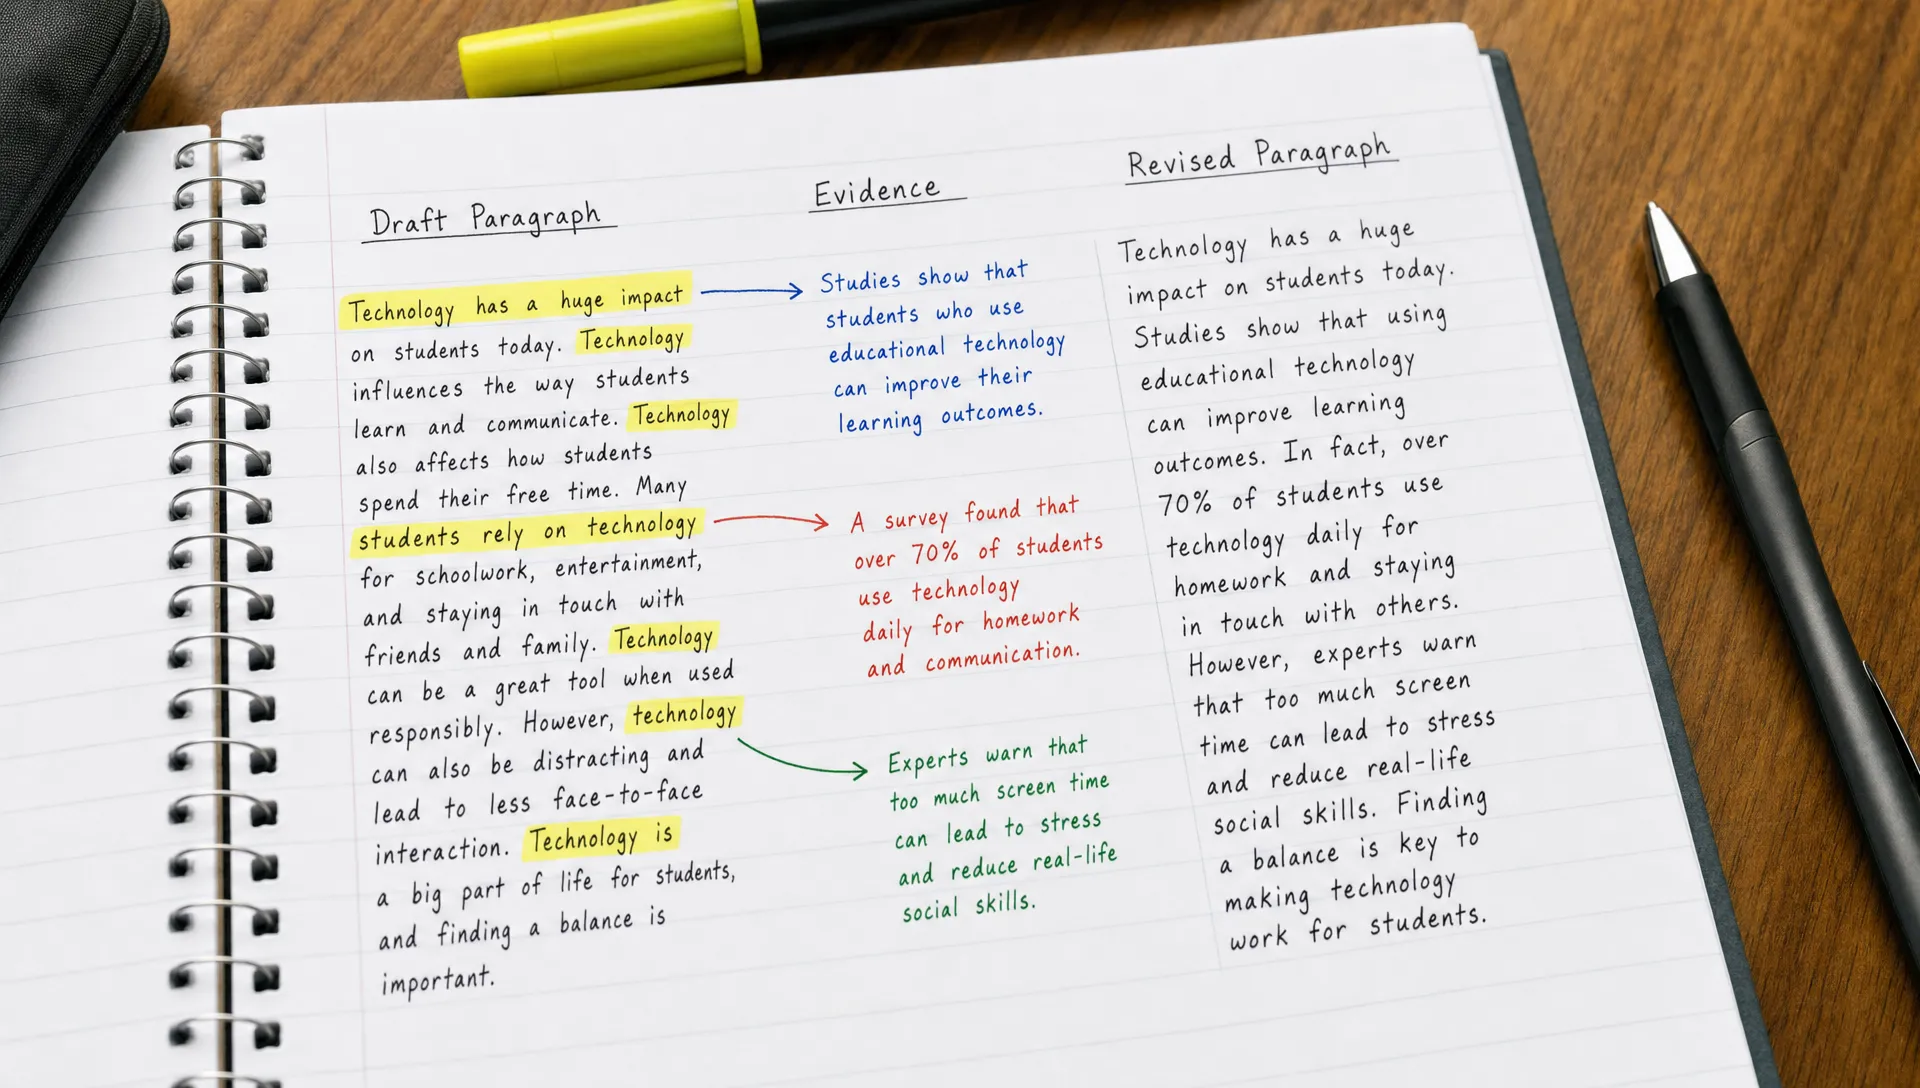 Draft Paragraph
Technology has a huge impact
on students today. Technology
influences the way students
learn and communicate. Technology
also affects how students
spend their free time. Many
students rely on technology
for schoolwork, entertainment,
and staying in touch with
friends and family. Technology
can be a great tool when used
responsibly. However, technology
can also be distracting and
lead to less face-to-face
interaction. Technology is
a big part of life for students,
and finding a balance is
important.
Evidence
Studies show that
students who use
educational technology
can improve their
learning outcomes.
A survey found that
over 70% of students
use technology
daily for homework
and communication.
Experts warn that
too much screen time
can lead to stress
and reduce real-life
social skills.
Revised Paragraph
Technology has a huge
impact on students today.
Studies show that using
educational technology
can improve learning
outcomes. In fact, over
70% of students use
technology daily for
homework and staying
in touch with others.
However, experts warn
that too much screen
time can lead to stress
and reduce real-life
social skills. Finding
a balance is key to
making technology
work for students.